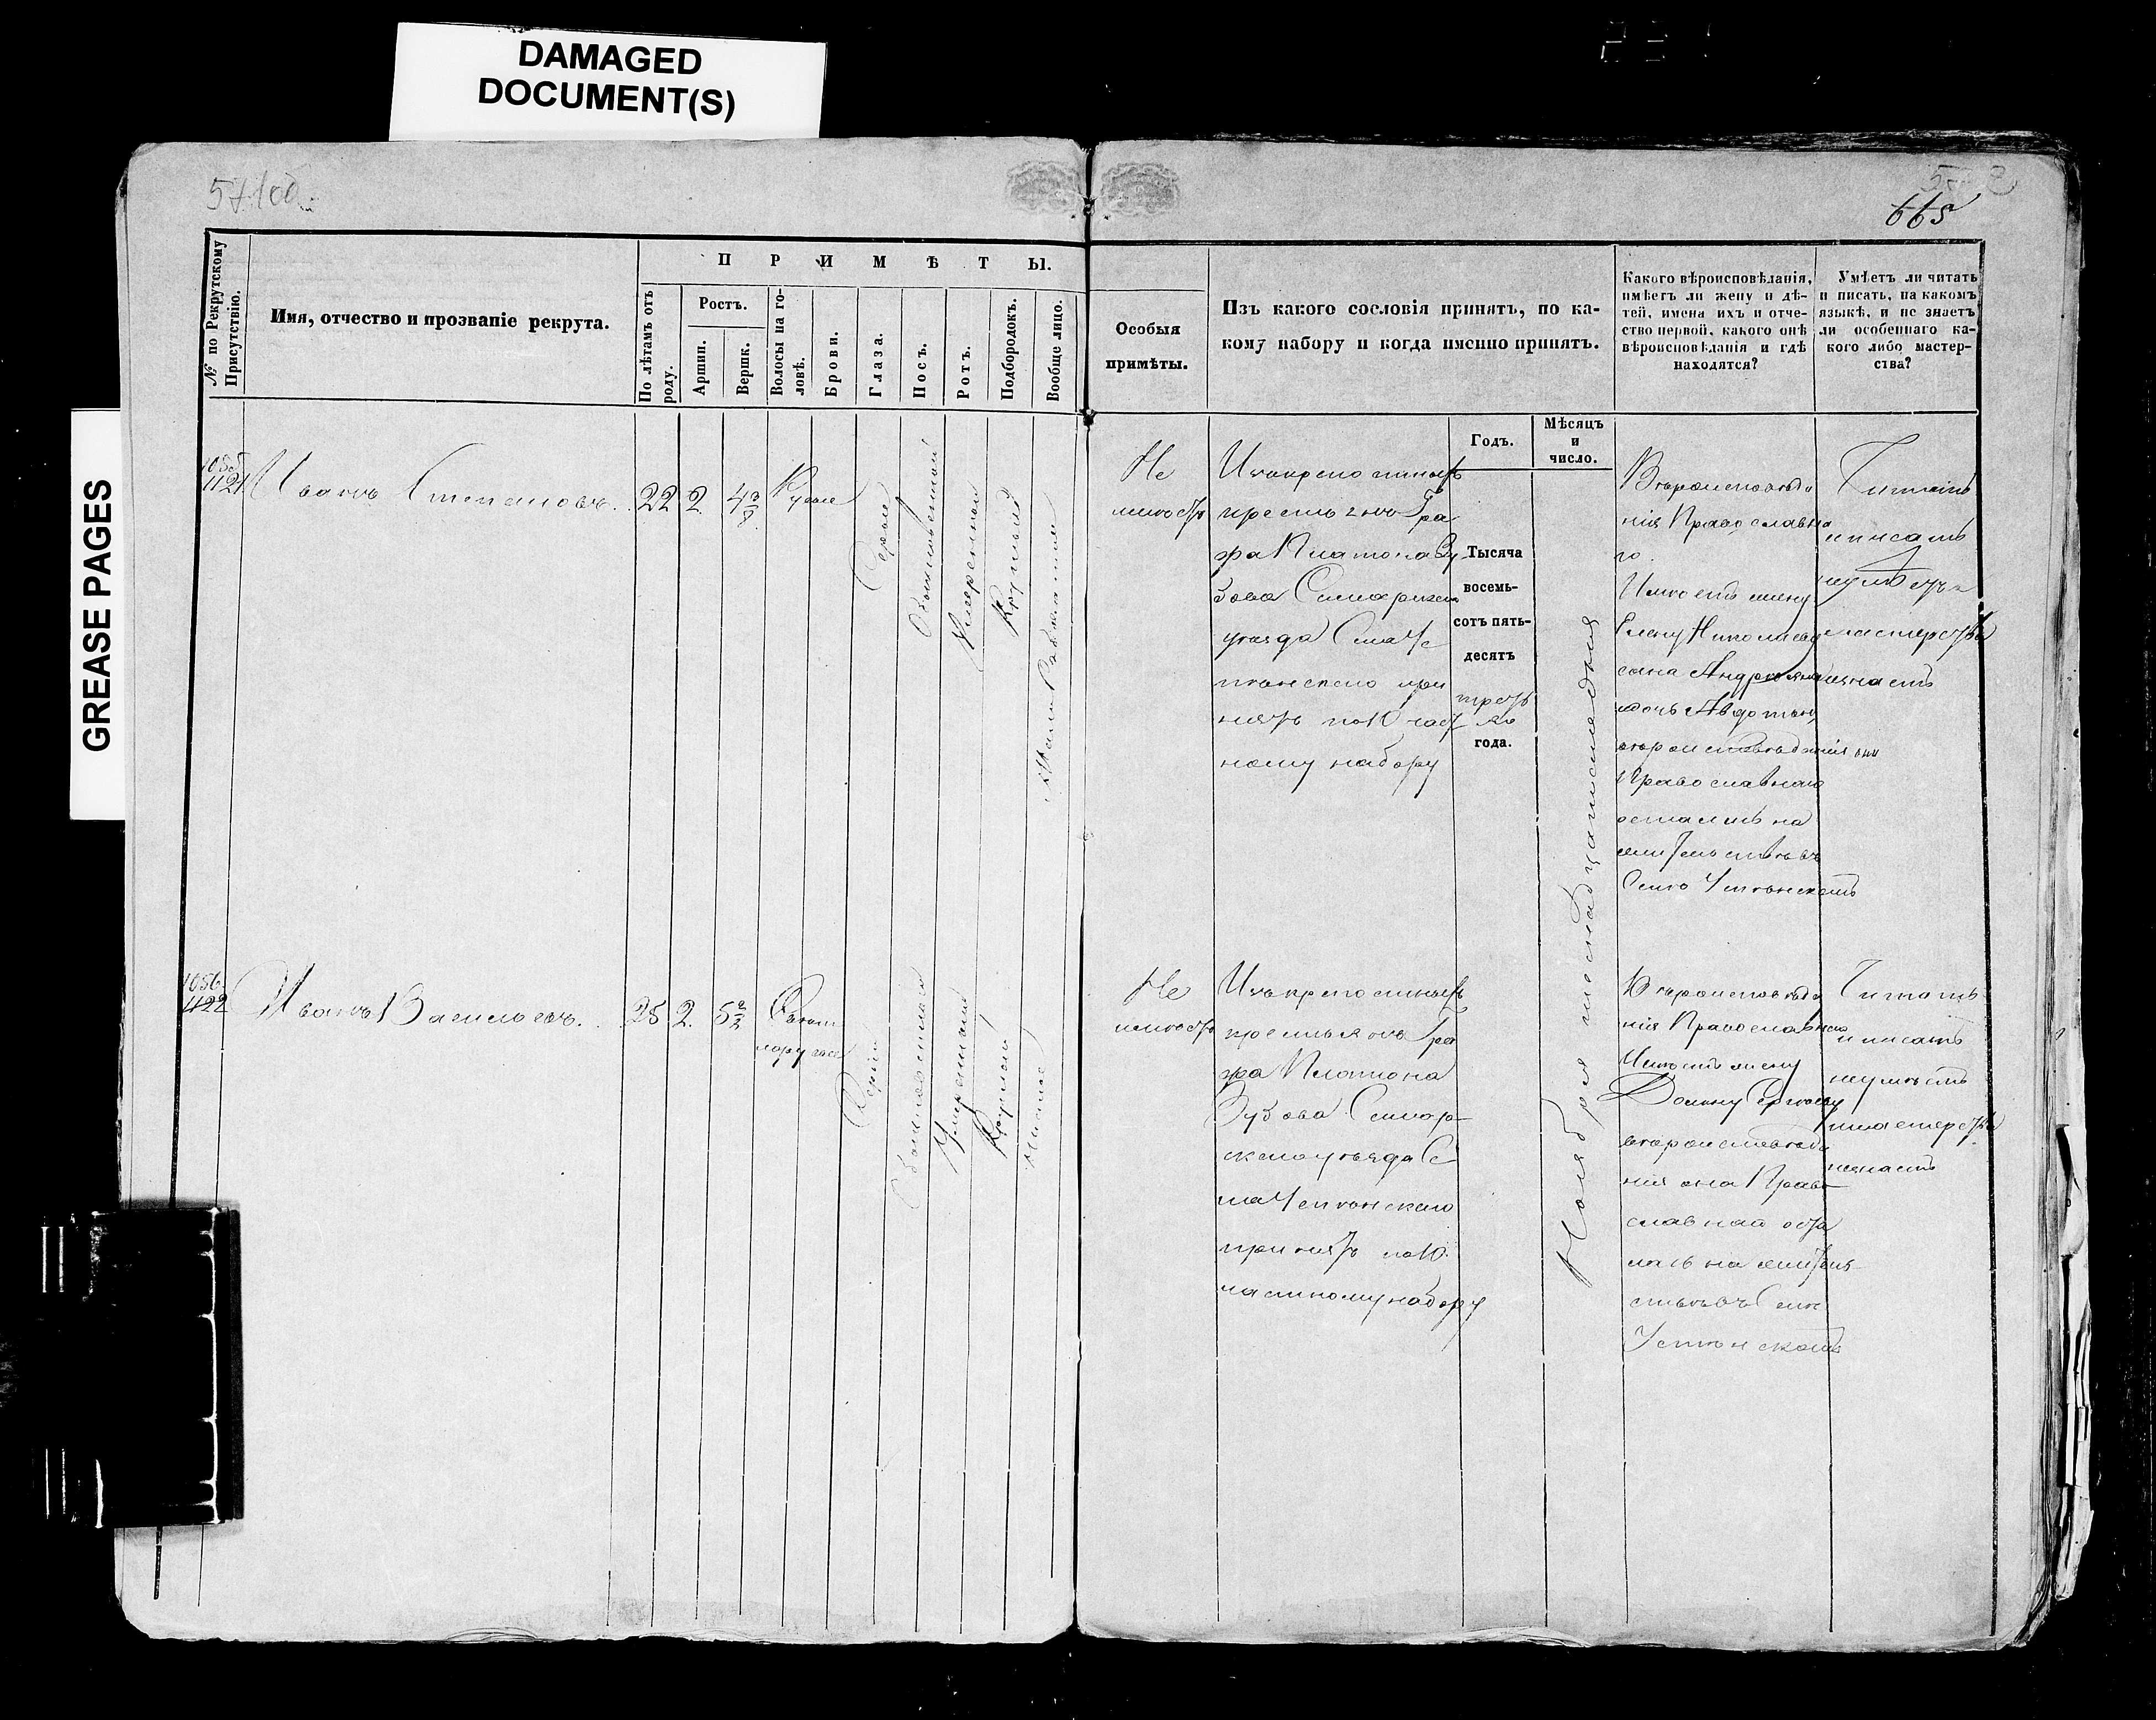 DAMAGED
DOCUMENT(S)
GREASE PAGES
665
№ по Рекрутскому
Присутствію.
Имя, отчество и прозваніе рекрута.
ПРИМѢТЫ.
По лѣтамъ отъ
роду.
Ростъ.
Аршин.
Вершк.
Волосы на го-
ловѣ.
Брови.
Глаза.
Носъ.
Ротъ.
Подбородокъ.
Вообще лицо.
Особыя
примѣты.
Изъ какого сословія принятъ, по ка-
кому набору и когда именно принятъ.
Годъ.
Мѣсяцъ
и
число.
Какого вѣроисповѣданія,
имѣетъ ли жену и дѣ-
тей, имена ихъ и отче-
ство первой, какого онѣ
вѣроисповѣданія и гдѣ
находятся?
Умѣетъ ли читать
и писать, на какомъ
языкѣ, и не знаетъ
ли особеннаго ка-
кого либо мастер-
ства?
1055
1121
Иванъ Степановъ.
22
2
Русые
Серые
Обыкновенной
Умеренной
Круглой
Не
имеетъ
Изъ крепостныхъ
крестьянъ Гра
фа Платона Зу
бова
уезда
при
нятъ по 10 част
ному набору
Тысяча
восемь-
сотъ пять-
десятъ
третья
го
года.
Ноября шеснадцатаго дня
Вероисповеда
нія Православна
го
Имеетъ жену
Елену Николаеву
сына Андрея
дочь Авдотью
вероисповеданія они
Православнаго
остались на
жительстве въ
Селе Устенскомъ
Читать
и писать
неумеетъ
мастерства
незнаетъ
1056
1122
Иванъ Васильевъ.
25
2
Светло
русые
Серые
Обыкновенной
Умеренной
Круглой
Чистое
Не
имеетъ
Изъ крепостныхъ
крестьянъ Гра
фа Платона
Зубова
скаго уезда Се
ла Устенскаго
принятъ по 10
частному набору
Вероисповеда
нія Православнаго
Имеетъ жену
Домну Сергееву
вероисповеда
нія она Право
славнаго оста
лась на житель
стве въ Селе
Устенскомъ
Читать
и писать
неумеетъ
мастерства
незнаетъ